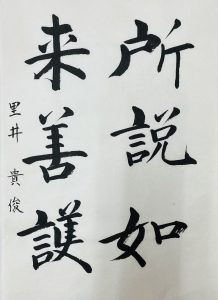 所説如
来善護
里井貴俊